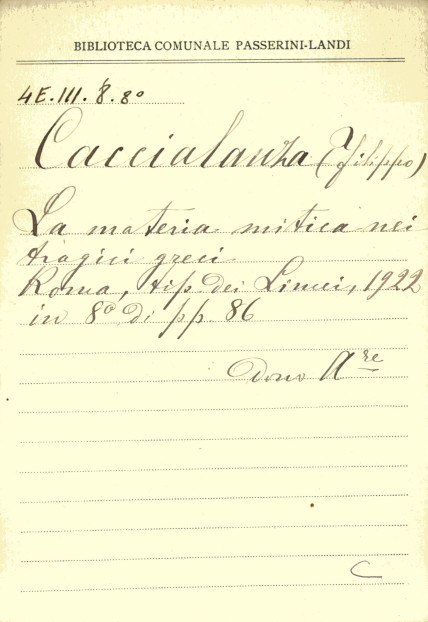 BIBLIOTECA COMUNALE PASSERINI-LANDI
4E.III.8.8º
Caccialanza (Filippo)
La materia mitica nei
tragici greci
Roma, tip. dei Lincei, 1922
in 8º di pp. 86
dono A.re
C